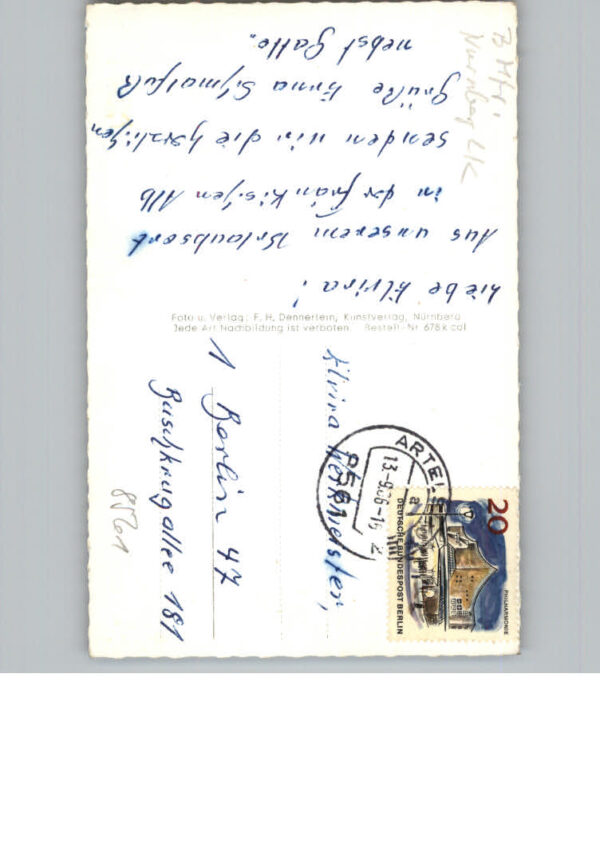 Liebe Elvira!
Aus unserem Urlaubsort
in der fränkischen Alb
senden wir die herzlichen
Grüße Emma
nebst Gatte.
Foto u. Verlag: F. H. Dennerlein, Kunstverlag, Nürnberg
Jede Art Nachbildung ist verboten. Bestell-Nr. 678k col
Elvira
1 Berlin 47
Buschkrugallee 181
20
PHILHARMONIE
DEUTSCHE BUNDESPOST BERLIN
13.-9.66-16
a
8561
8561
Nürnberg